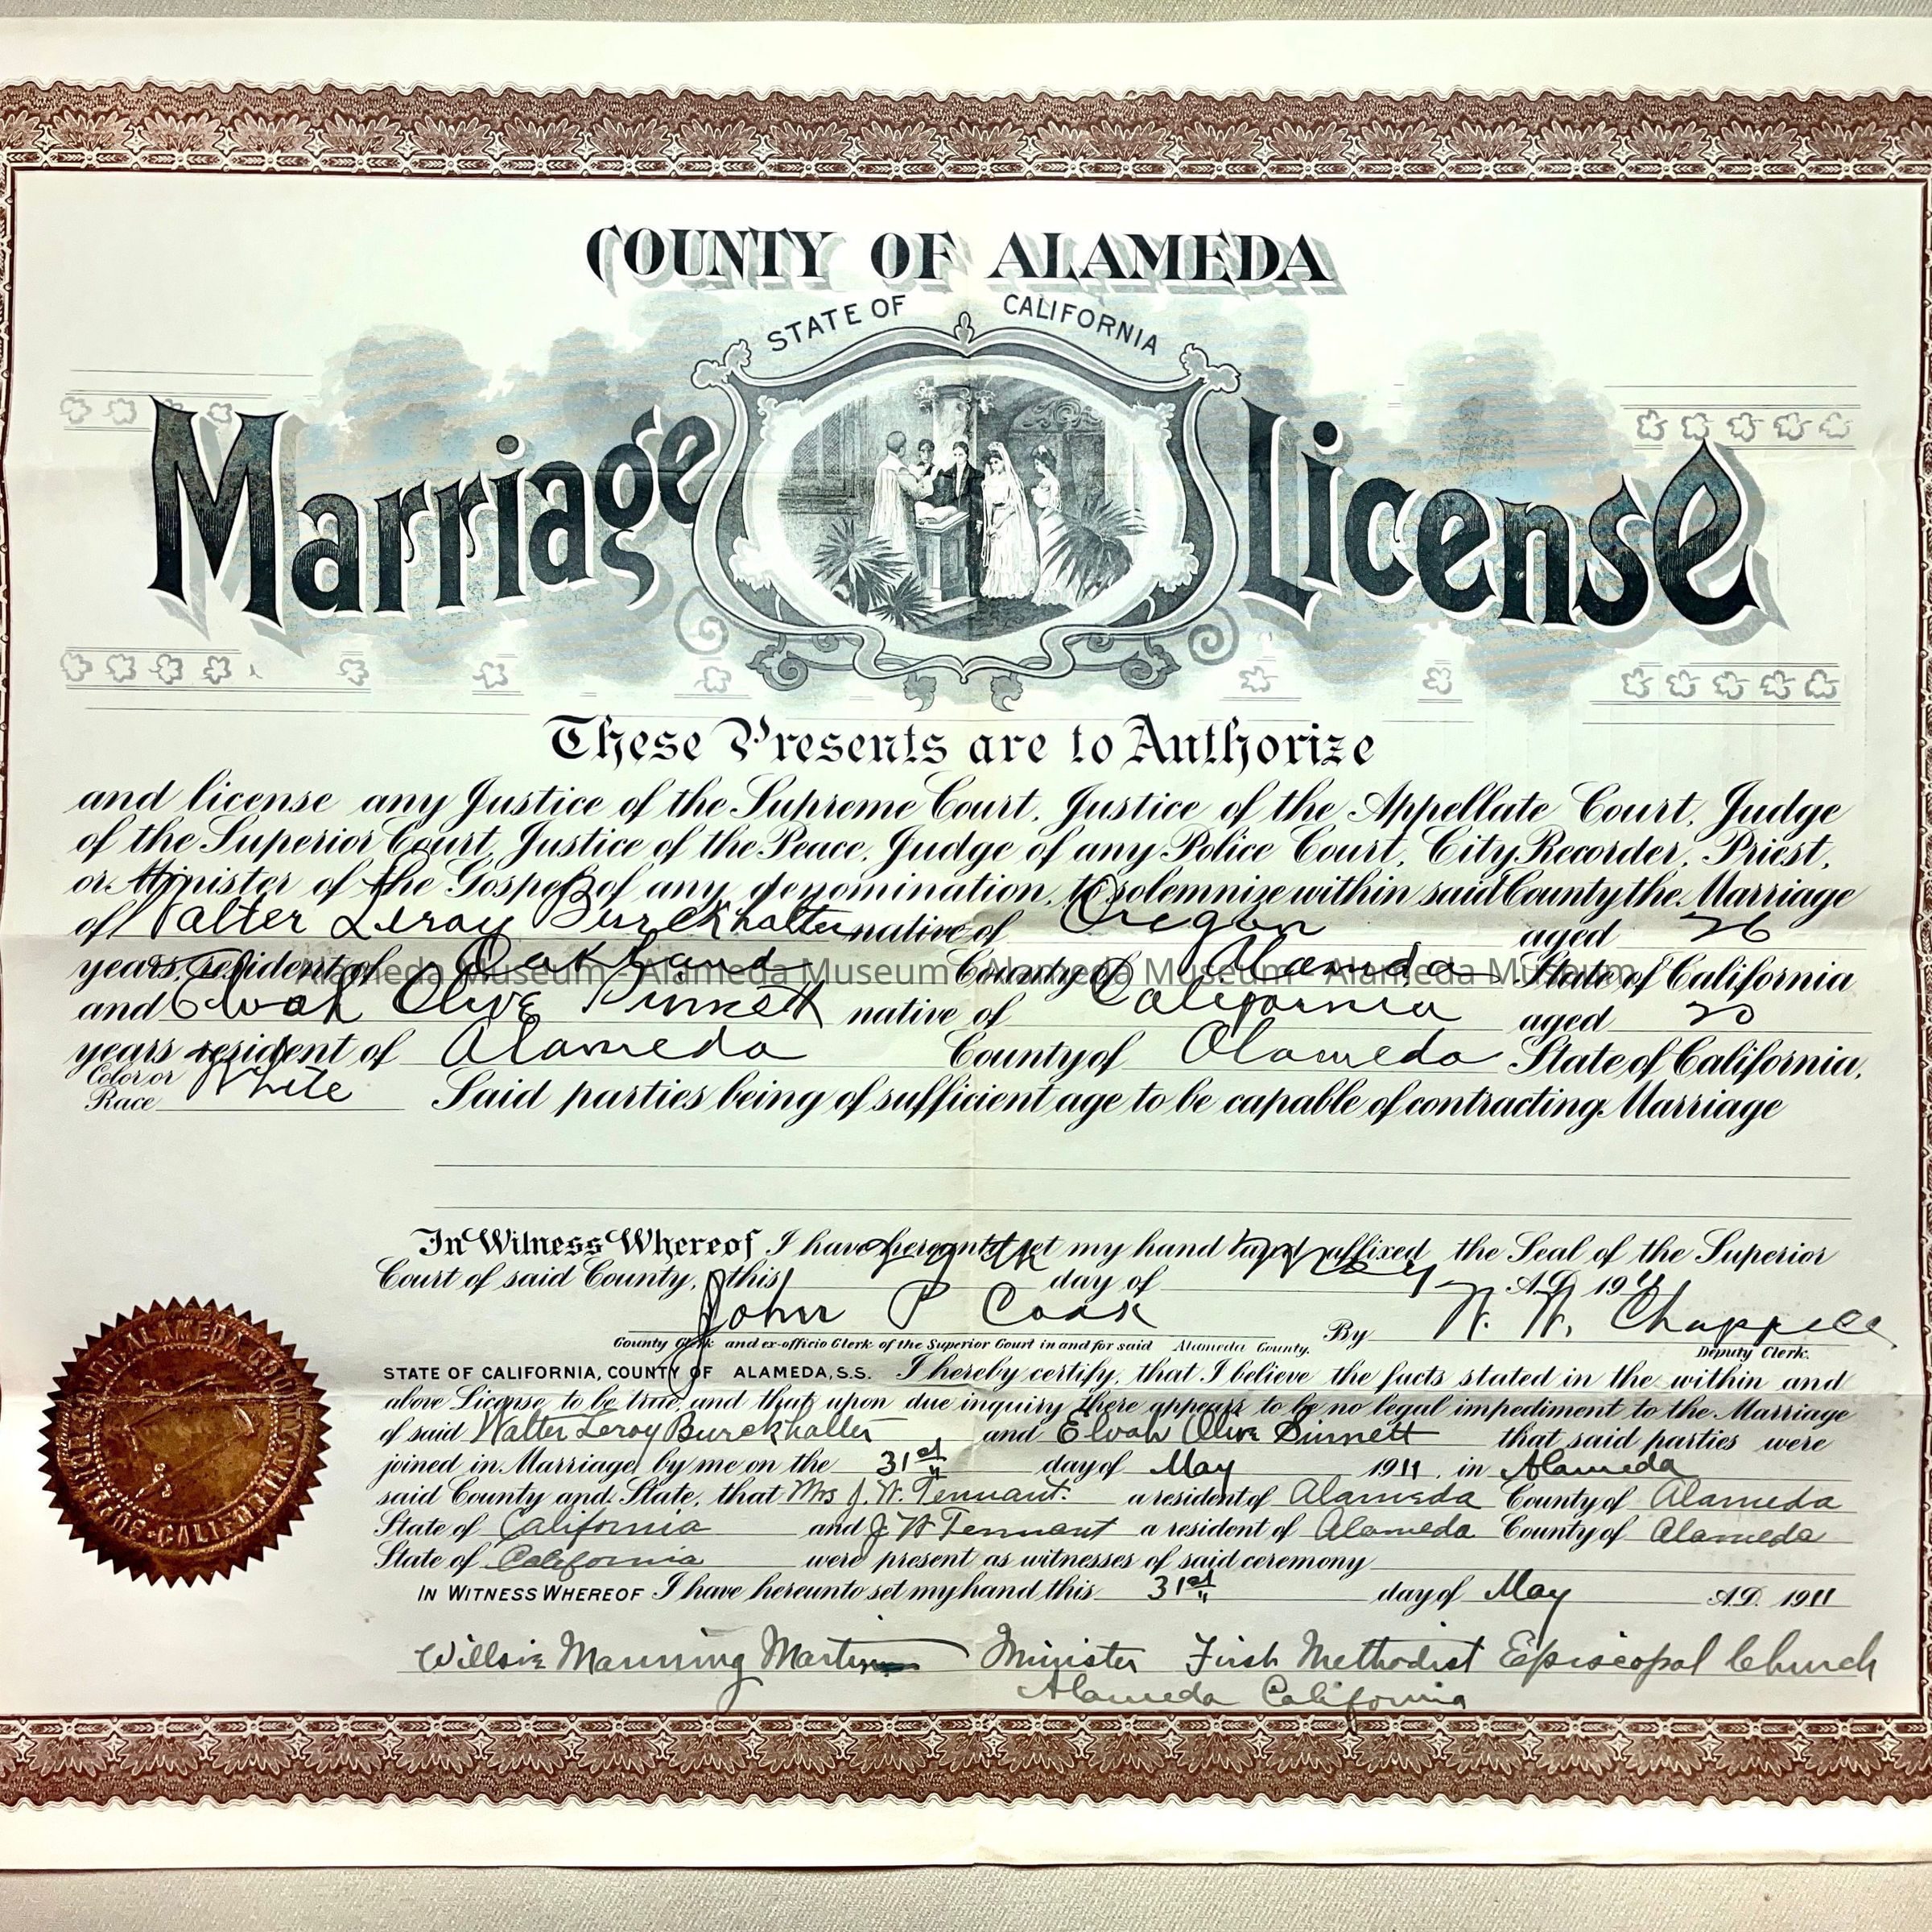 COUNTY OF ALAMEDA
STATE OF CALIFORNIA
Marriage License
These Presents are to Authorize
and license any Justice of the Supreme Court, Justice of the Appellate Court, Judge
of the Superior Court, Justice of the Peace, Judge of any Police Court, City Recorder, Priest,
or Minister of the Gospel of any denomination, to solemnize within said County the Marriage
of Walter Leroy Burckhalter native of Oregon aged 26
years, resident of Oakland County of Alameda State of California
Alameda Museum - Alameda Museum - Alameda Museum - Alameda Museum
and Elvah Olive native of California aged 20
years resident of Alameda County of Alameda State of California,
Color or Race White Said parties being of sufficient age to be capable of contracting Marriage
In Witness Whereof I have hereunto set my hand and affixed the Seal of the Superior
Court of said County, this day of May A.D. 1911
John P Cook By Chappell
County Clerk and ex-officio Clerk of the Superior Court in and for said Alameda County. Deputy Clerk.
STATE OF CALIFORNIA, COUNTY OF ALAMEDA, S.S. I hereby certify, that I believe the facts stated in the within and
above License to be true, and that upon due inquiry there appears to be no legal impediment to the Marriage
of said Walter Leroy Burckhalter and Elvah Olive that said parties were
joined in Marriage, by me on the 31st day of May 1911, in Alameda
said County and State, that Mrs J. W. Tennant. a resident of Alameda County of Alameda
State of California and J W Tennant a resident of Alameda County of Alameda
State of California were present as witnesses of said ceremony
IN WITNESS WHEREOF I have hereunto set my hand this 31st day of May A.D. 1911
Willsie Manning Martin Minister First Methodist Episcopal Church
Alameda California
SUPERIOR COURT ALAMEDA COUNTY CALIFORNIA